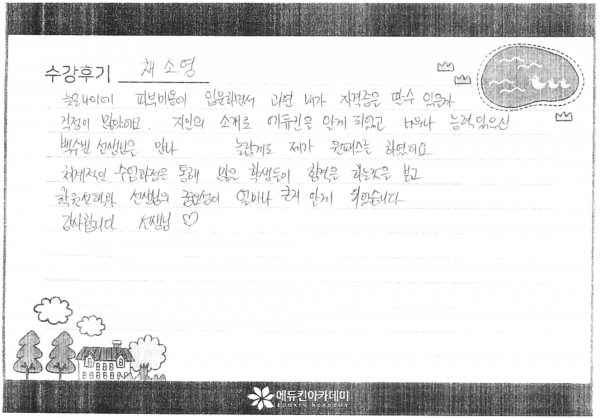 수강후기 채소영
늦은나이에 피부미용에 입문하면서 과연 내가 자격증은 딸수 있을까
걱정이 많았어요. 지인의 소개로 에듀킨을 알게 되었고 너무나 능력있으신
백수빈 선생님은 만나 놀랍게도 제가 원패스를 하였네요
체계적인 수업과정을 통해 많은 학생들이 합격은 하는것을 보고
학원선택과 선생님의 중요성이 얼마나 큰지 알게 되었습니다
감사합니다 선생님 ♡
에듀킨아카데미
EDUKIN ACADEMY